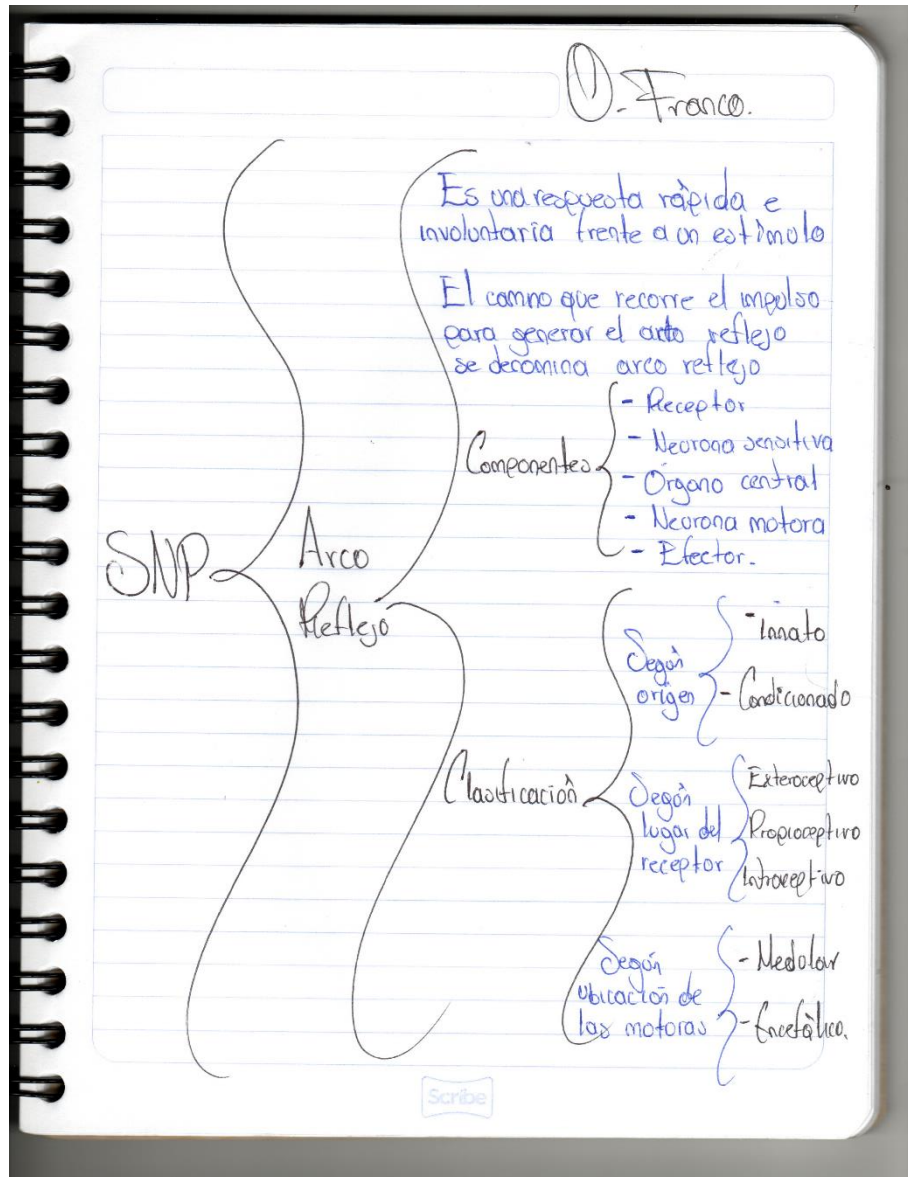 O. Franco.
Es una respuesta ràpida e
involuntaria frente a un estìmulo
El camno que recorre el impulso
para generar el acto reflejo
se denomina arco reflejo
Componentes
- Receptor
- Neurona sensitiva
- Organo central
- Neurona motora
- Efector.
SNP
Arco
Reflejo
Clasificaciòn
Segùn
origen
- Innato
- Condicionado
Segùn
lugar del
receptor
Exteroceptivo
Propioceptivo
Introceptivo
Según
ubicación de
las motoras
- Medular
- Encefàlico.
Scribe